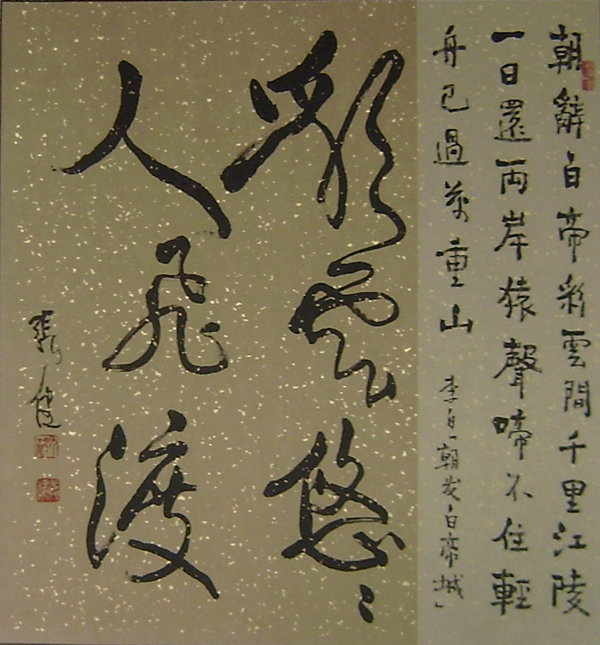 朝辭白帝彩雲間千里江陵
一日還两岸猿聲啼不住輕
舟已過萬重山 李白「朝发白帝城」
雲悠々
人飛渡